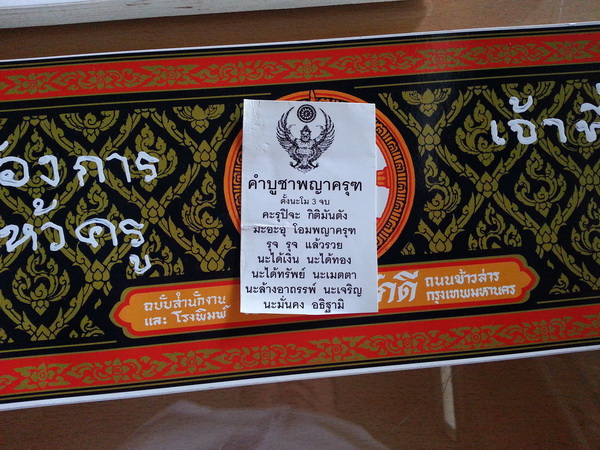 องการ
ห้วครู
เจ้าที่
คำบูชาพญาครุฑ
ตั้งนะโม 3 จบ
คะรุปิจะ กิติมันตัง
มะอะอุ โอมพญาครุฑ
รุจ รุจ แล้วรวย
นะได้เงิน นะได้ทอง
นะได้ทรัพย์ นะเมตตา
นะล้างอาถรรพ์ นะเจริญ
นะมั่นคง อธิฐามิ
ฉบับสำนักงาน
และ โรงพิมพ์
ภักดี
ถนนข้าวสาร
กรุงเทพมหานคร